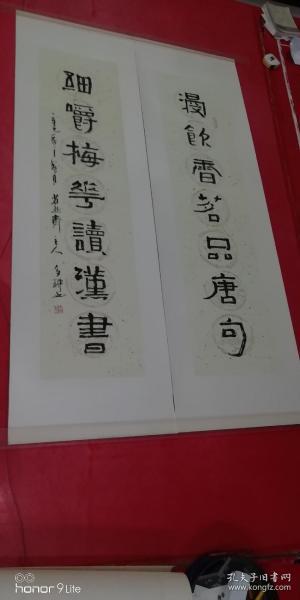 漫飲香茗品唐句
細嚼梅花讀漢書
honor 9 Lite
孔夫子旧书网
www.kongfz.com